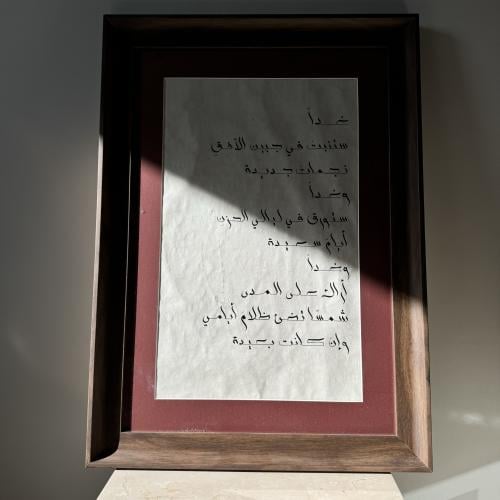 غداً
ستنبت في جبين الأفق
نجمات جديدة
وغداً
ستورق في ليالي الحزن
أيام سعيدة
وغداً
أراك على المدى
شمساً تضئ ظلام أيامي
وإن كانت بعيدة